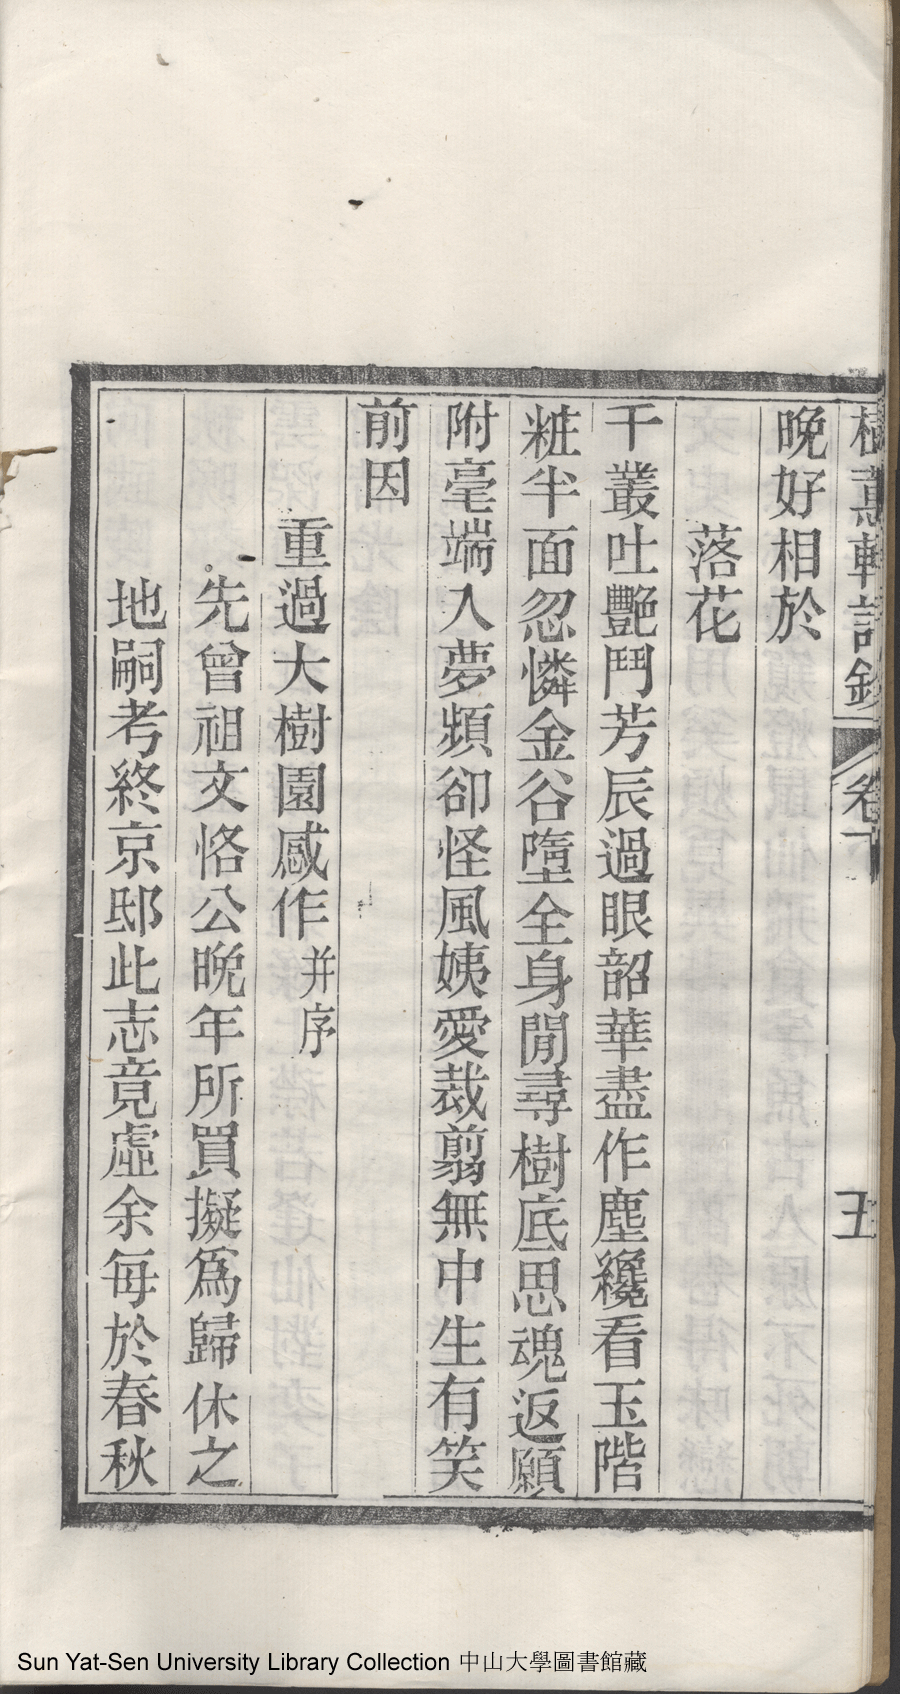 軒詩鈔 卷下 五
晚好相於
落花
千叢吐艷鬥芳辰過眼韶華盡作塵纔看玉階
粧半面忽憐金谷墮全身閒尋樹底思魂返願
附毫端入夢頻卻怪風姨愛裁翦無中生有笑
前因
重過大樹園感作 并序
先曾祖文恪公晚年所買擬爲歸休之
地嗣考終京邸此志竟虛余每於春秋
Sun Yat-Sen University Library Collection 中山大學圖書館藏